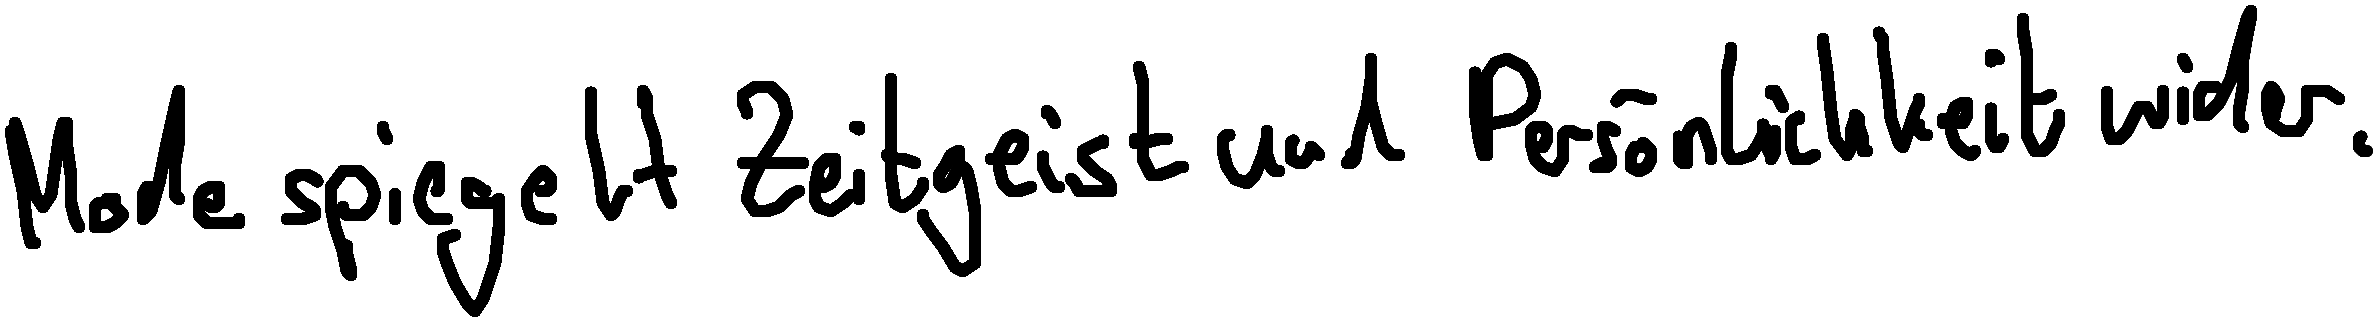 Mode spiegelt Zeitgeist und Persönlichkeit wider.